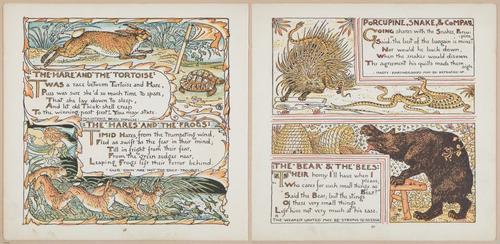 THE·HARE·AND·THE·TORTOISE
'TWAS a race between Tortoise and Hare,
Puss was sure she'd so much time to spare,
That she lay down to sleep,
And let old Thick-shell creep
To the winning post first! You may stare.
THE·HARES·AND·THE·FROGS:
TIMID Hares, from the trumpeting wind,
Fled as swift as the fear in their mind;
Till in fright from their fear,
From the green sedges near,
Leaping Frogs left their terror behind.
OUR OWN ARE NOT THE ONLY TROUBLES
PORCUPINE, SNAKE, & COMPANY
GOING shares with the Snakes, Porcupine
Said—the best of the bargain is mine:
Nor would he back down,
When the snakes would disown
The agreement his quills made them sign.
HASTY PARTNERSHIPS MAY BE REPENTED OF
THE·BEAR & THE·BEES:
"THEIR honey I'll have when I please,
Who cares for such small things as Bees?"
Said the Bear; but the stings
Of these very small things
Left him not very much at his ease.
THE WEAKEST UNITED MAY BE STRONG TO AVENGE